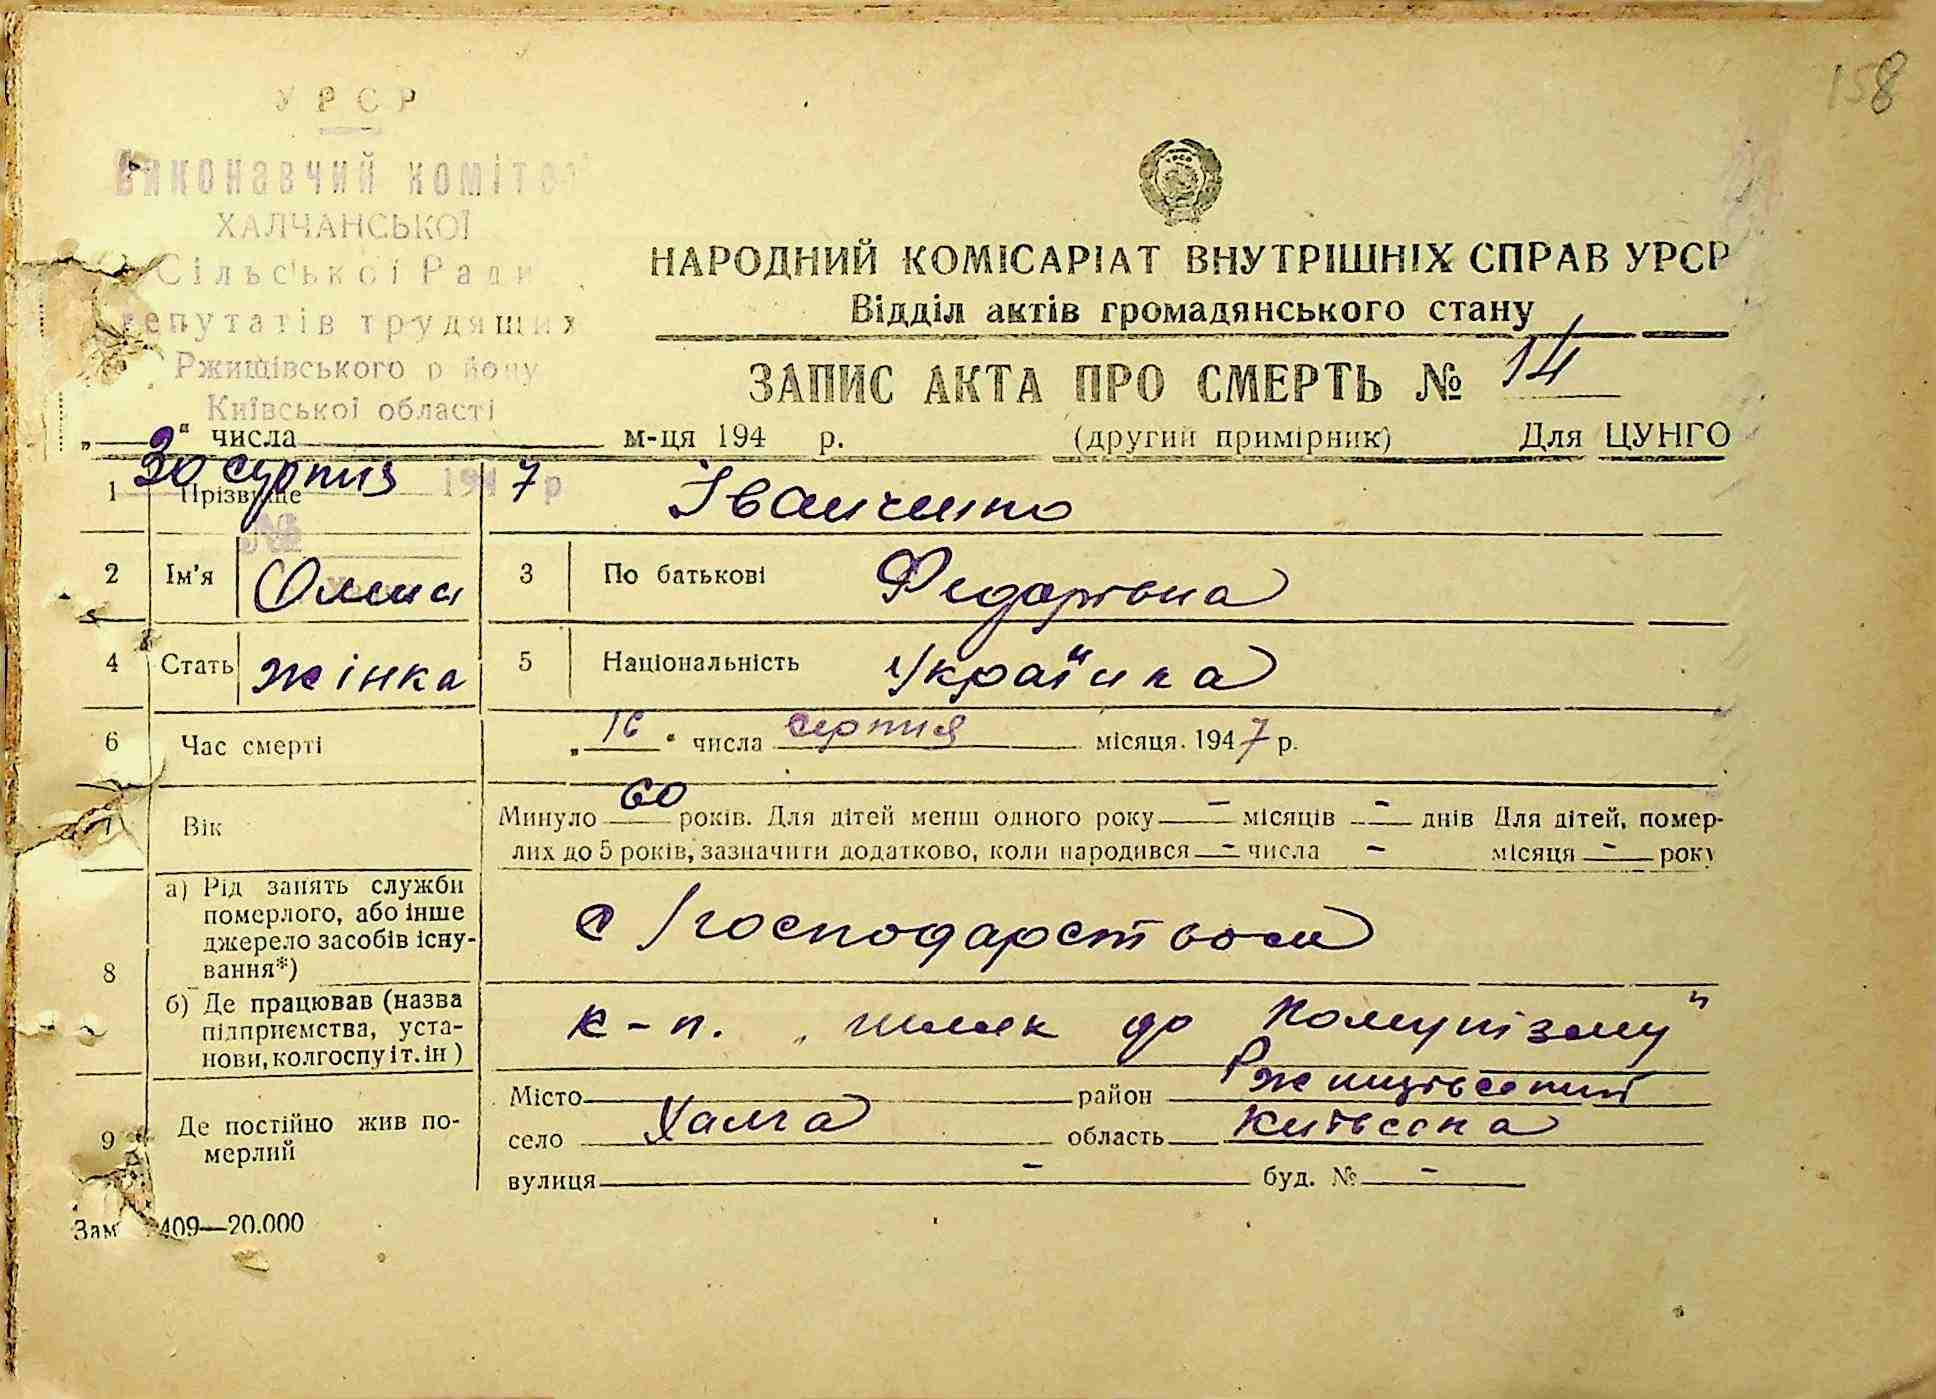 158
УРСР
Виконавчий комітет
ХАЛЧАНСЬКОЇ
Сільської Ради
депутатів трудящих
Ржищівського району
Київської області
НАРОДНИЙ КОМІСАРІАТ ВНУТРІШНІХ СПРАВ УРСР
Відділ актів громадянського стану
ЗАПИС АКТА ПРО СМЕРТЬ № 14
„ “ числа м-ця 194 р. (другий примірник) Для ЦУНГО
30 серпня 1947 р
№
1 Прізвище Іванченко
2 Ім'я Олена 3 По батькові Федорівна
4 Стать жінка 5 Національність Українка
6 Час смерті „16“ числа серпня місяця 1947 р.
7 Вік Минуло 60 років. Для дітей менш одного року – місяців – днів Для дітей, помер-
лих до 5 років, зазначити додатково, коли народився – числа – місяця – року
8 а) Рід занять служби
померлого, або інше
джерело засобів існу-
вання*)
с/господарством
б) Де працював (назва
підприємства, уста-
нови, колгоспу і т. ін)
к-п. „шлях до Комунізму"
9 Де постійно жив по-
мерлий
Місто район Ржищівський
село Халча область Київська
вулиця – буд. № –
Зам 409—20.000